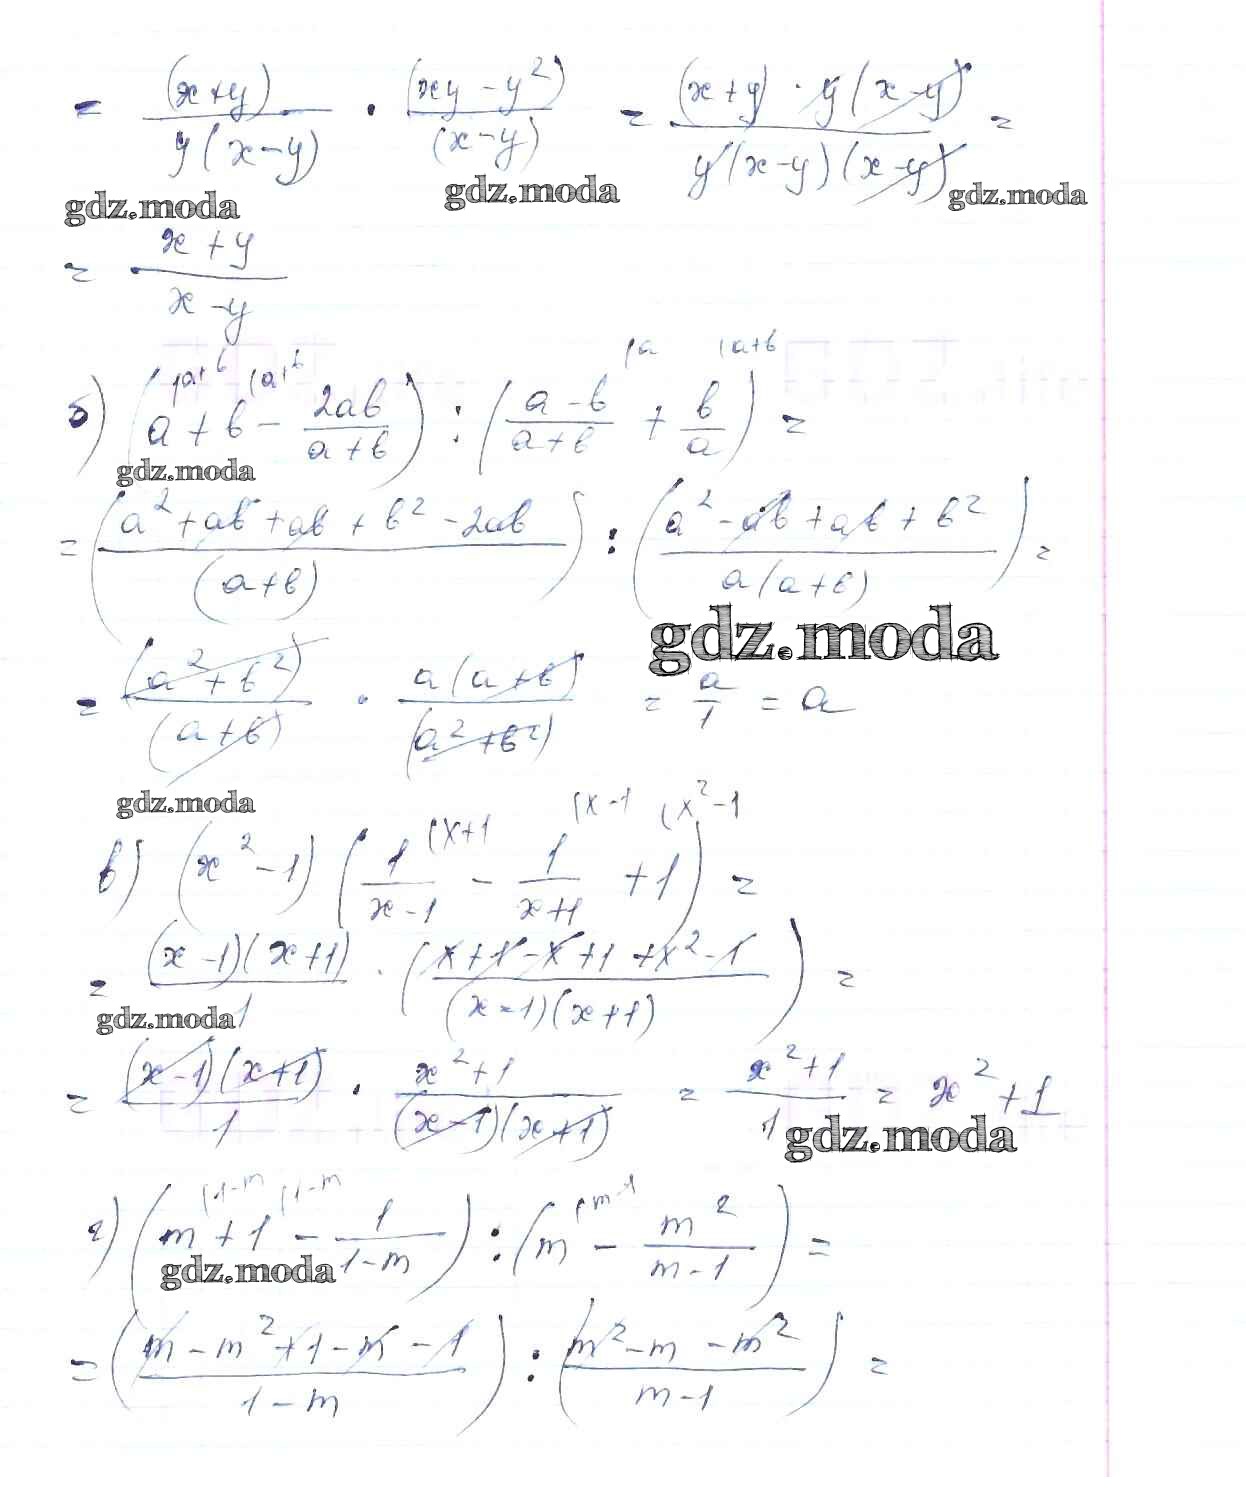 = (x+y) / y(x-y) · (xy - y²) / (x-y) = (x+y) · y(x-y) / y(x-y)(x-y) =
gdz.moda gdz.moda gdz.moda
= x+y / x-y
(a+b (a+b (a (a+b
б) (a + b - 2ab / a+b) : (a-b / a+b + b / a) =
gdz.moda
= (a² + ab + ab + b² - 2ab / (a+b)) : (a² - ab + ab + b² / a(a+b)) =
gdz.moda
= (a² + b²) / (a+b) · a(a+b) / (a² + b²) = a / 1 = a
gdz.moda
(x+1 (x-1 (x²-1
в) (x² - 1) (1 / x-1 - 1 / x+1 + 1) =
= (x-1)(x+1) / 1 · (x+1-x+1+x²-1 / (x-1)(x+1)) =
gdz.moda
= (x-1)(x+1) / 1 · x²+1 / (x-1)(x+1) = x²+1 / 1 = x²+1
gdz.moda
(1-m (1-m (m-1
г) (m + 1 - 1 / 1-m) : (m - m² / m-1) =
gdz.moda
= (m - m² + 1 - m - 1 / 1-m) : (m² - m - m² / m-1) =